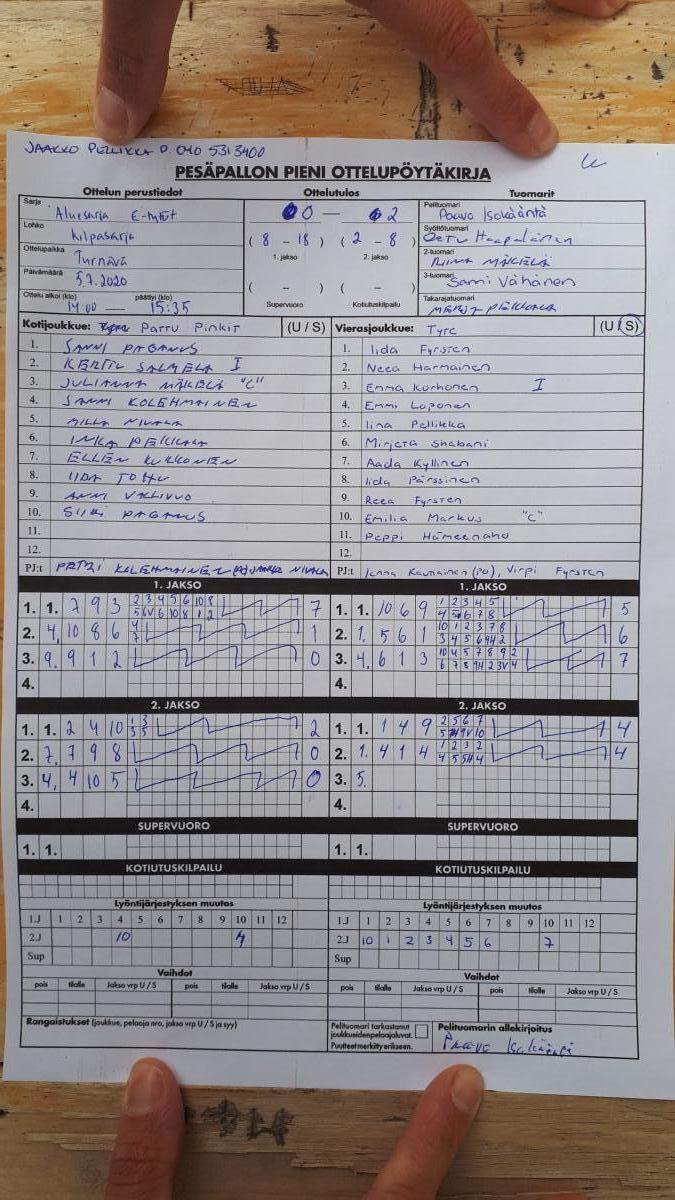 JAAKKO PELLIKKA P. 040 5313400
PESÄPALLON PIENI OTTELUPÖYTÄKIRJA
Ottelun perustiedot
Sarja
Aluesarja E-tytöt
Lohko
Kilpasarja
Ottelupaikka
Tyrnävä
Päivämäärä
5.7.2020
Ottelu alkoi (klo) päättyi (klo)
14:00 — 15:35
Ottelutulos
0 — 2
( 8 - 18 ) ( 2 - 8 )
1. jakso 2. jakso
( - ) ( - )
Supervuoro Kotiutuskilpailu
Tuomarit
Pelituomari
Paavo Isokääntä
Syöttötuomari
Eetu Haapalainen
2-tuomari
MÄKELÄ
3-tuomari
Sami Vähänen
Takarajatuomari
PEKKALA
Kotijoukkue: Pattu Pinkit (U / S)
1. SANNI PAGANUS
2. KERTTU SALMELA I
3. JULIANNA MÄKELÄ "C"
4. SANNI KOLEHMAINEN
5. MILLA NIVALA
6. INKA PEKKALA
7. ELLEN KUKKONEN
8. IIDA
9. ANNI
10. SIIRI PAGANUS
11.
12.
PJ:t PETRI KOLEHMAINEN (PJ) NIVALA
Vierasjoukkue: Tyrc (U / S)
1. Iida Fyrsten
2. Neea Harmainen
3. Emma Korhonen I
4. Emmi Loponen
5. Iina Pellikka
6. Mirjeta Shabani
7. Aada Kyllinen
8. Iida Pärssinen
9. Reea Fyrsten
10. Emilia Markus "C"
11. Peppi Hämeenaho
12.
PJ:t Jenna Kautiainen (PJ), Virpi Fyrsten
1. JAKSO
1. 1. 7 9 3 2 3 4 5 6 10 8 7
5 6V 6 10 8 1 2
2. 4. 10 8 6 4 1
7
3. 9. 9 1 2 0
4.
1. JAKSO
1. 1. 10 6 9 1 2 3 4 5 5
4 5 6 7 8
2. 1. 5 6 1 10 1 2 3 7 8 6
3 4 5 6 9H 2
3. 4. 6 1 3 10 4 5 7 8 9 2 7
6 7 8 9H 2 3V 4
4.
2. JAKSO
1. 1. 2 4 10 1 3 2
3 5
2. 7. 7 9 8 0
3. 4. 4 10 5 0
4.
2. JAKSO
1. 1. 1 4 9 2 5 6 7 4
2. 1. 4 1 4 1 2 3 2 4
4 5 5H 4
3. 5.
4.
SUPERVUORO
1. 1.
SUPERVUORO
1. 1.
KOTIUTUSKILPAILU
KOTIUTUSKILPAILU
Lyöntijärjestyksen muutos
1.J 1 2 3 4 5 6 7 8 9 10 11 12
2.J 10 4
Sup
Lyöntijärjestyksen muutos
1.J 1 2 3 4 5 6 7 8 9 10 11 12
2.J 10 1 2 3 4 5 6 7
Sup
Vaihdot
pois tilalle Jakso vrp U / S pois tilalle Jakso vrp U / S
Vaihdot
pois tilalle Jakso vrp U / S pois tilalle Jakso vrp U / S
Rangaistukset (joukkue, pelaaja nro, jakso vrp U / S ja syy)
Pelituomari tarkastanut
joukkueidenpelaajaluvat.
Puutteet merkitty erikseen.
Pelituomarin allekirjoitus
Paavo Isokääntä